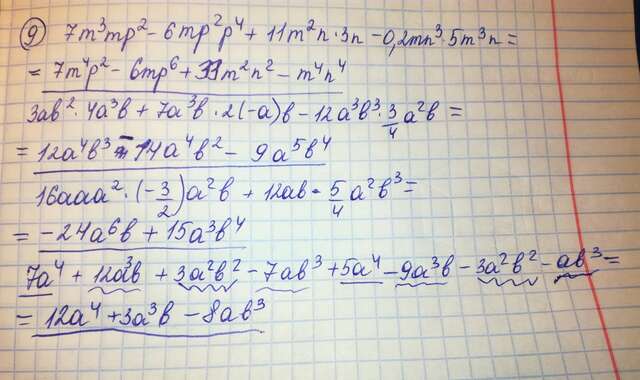 ⑨ 7m³mp² - 6mp²p⁴ + 11m²n·3n - 0,2mn³·5m³n =
= 7m⁴p² - 6mp⁶ + 33m²n² - m⁴n⁴
3ab²·4a³b + 7a³b·2(-a)b - 12a³b³·3/4a²b =
= 12a⁴b³ - 14a⁴b² - 9a⁵b⁴
16aaa²·(-3/2)a²b + 12ab·5/4a²b³ =
= -24a⁶b + 15a³b⁴
7a⁴ + 12a³b + 3a²b² - 7ab³ + 5a⁴ - 9a³b - 3a²b² - ab³ =
= 12a⁴ + 3a³b - 8ab³